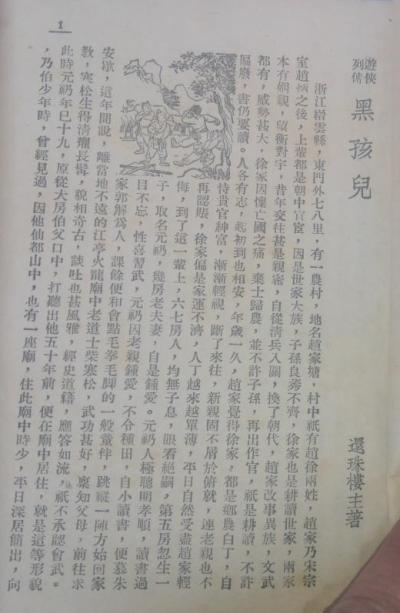 1
遊俠列傳
黑孩兒
還珠樓主著
浙江縉雲縣，東門外七八里，有一農村，地名趙家塘，村中祇有趙徐兩姓，趙家乃宋宗
室趙炳之後，上輩都是朝中官宦，因是世家大族，子孫良莠不齊，徐家也是耕讀世家，兩家
本有姻親，望衡對宇，昔年交往甚是親密，自從清兵入關，換了朝代，趙家故事異族，文武
都有，威勢甚大，徐家因懷亡國之痛，棄士歸農，並不許子孫，再出作官，祇是耕讀，不許
偏廢，書仍要讀。人各有志，起初到也相安，年歲一久，趙家覺得徐家，都是鄉農白丁，自
恃貴官紳富，漸漸輕視，斷了來往，新親固不屑於俯就，連老親也不
再認賬，徐家偏是家運不濟，人丁越來越單薄，平日自然受盡趙家輕
侮，到了這一輩上，六七房人，均無子息，眼看絕嗣，第五房忽生一
子，取名元礽，幾房老夫妻，自是鍾愛。元礽人極聰明孝順，讀書過
目不忘，性喜習武，元礽因老親鍾愛，不令種田，自小讀書，便慕朱
家郭解爲人，課餘便和會點毛拳毛脚的一般童伴，跳縱一陣方始回家
安歇，這年聞說，離當地不遠的江亭火龍廟中老道士柴寒松，武功甚好，稟知父母，前往求
教，寒松生得清癯長髯，貌相奇古，談吐也甚風雅，經史道籍，應答如流，祇不承認會武。
此時元礽年已十九，原從大房伯父口中，打聽出他五十年前，便在廟中居住，就是這等形貌
，乃伯少年時，曾經見過，因他仙都山中，也有一座廟，住此廟中時少，平日深居簡出，向